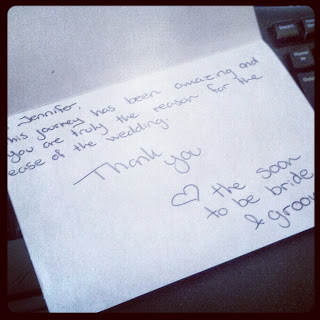 Jennifer,
his journey has been amazing and
you are truly the reason for the
ease of the wedding.
Thank you
♡ the soon
to be bride
& groom